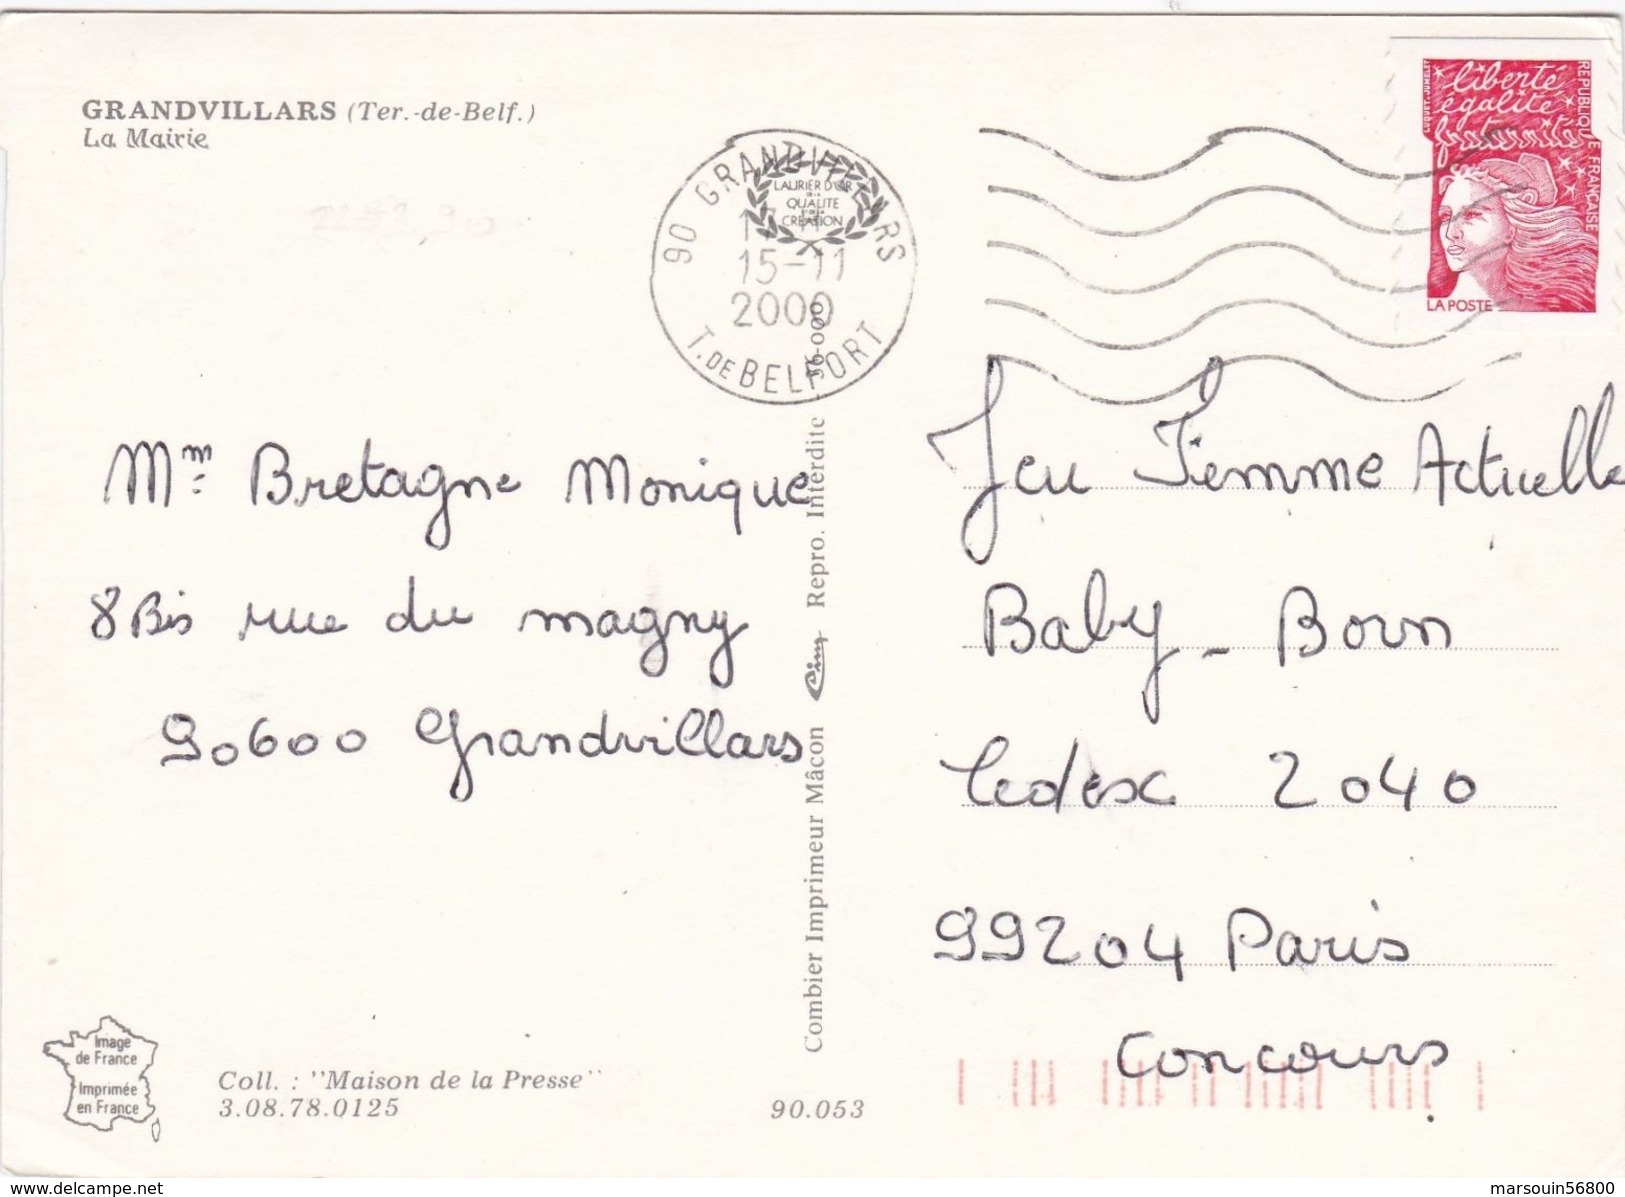 GRANDVILLARS (Ter.-de-Belf.)
La Mairie
90 GRANDVILLARS
15-11
2000
T. DE BELFORT
LAURIER D'OR
DE LA
QUALITE
CREATION
liberté
égalité
fraternité
REPUBLIQUE FRANÇAISE
LA POSTE
Mme Bretagne Monique
8 Bis rue du magny
90600 Grandvillars
Combier Imprimeur Mâcon Cim Repro. Interdite
Jeu Femme Actuelle
Baby-Born
Cedex 2040
99204 Paris
Concours
Image
de France
Imprimée
en France
Coll. : "Maison de la Presse"
3.08.78.0125
90.053
www.delcampe.net
marsouin56800